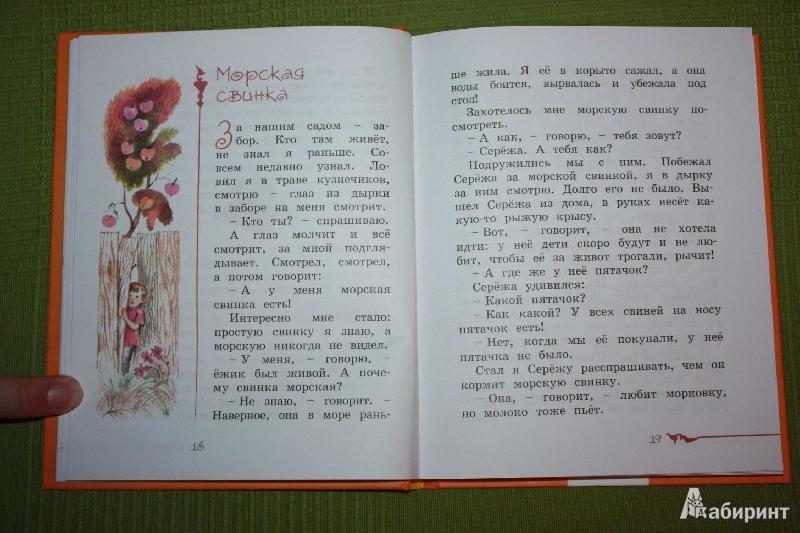 Морская
свинка
За нашим садом – за-
бор. Кто там живёт,
не знал я раньше. Со-
всем недавно узнал. Ло-
вил я в траве кузнечиков,
смотрю – глаз из дырки
в заборе на меня смотрит.
– Кто ты? – спрашиваю.
А глаз молчит и всё
смотрит, за мной подгля-
дывает. Смотрел, смотрел,
а потом говорит:
– А у меня морская
свинка есть!
Интересно мне стало:
простую свинку я знаю, а
морскую никогда не видел.
– У меня, – говорю, –
ёжик был живой. А поче-
му свинка морская?
– Не знаю, – говорит. –
Наверное, она в море рань-
18
ше жила. Я её в корыто сажал, а она
воды боится, вырвалась и убежала под
стол!
Захотелось мне морскую свинку по-
смотреть.
– А как, – говорю, – тебя зовут?
– Серёжа. А тебя как?
Подружились мы с ним. Побежал
Серёжа за морской свинкой, я в дырку
за ним смотрю. Долго его не было. Вы-
шел Серёжа из дома, в руках несёт ка-
кую-то рыжую крысу.
– Вот, – говорит, – она не хотела
идти: у неё дети скоро будут и не лю-
бит, чтобы её за живот трогали, рычит!
– А где же у неё пятачок?
Серёжа удивился:
– Какой пятачок?
– Как какой? У всех свиней на носу
пятачок есть!
– Нет, когда мы её покупали, у неё
пятачка не было.
Стал я Серёжу расспрашивать, чем он
кормит морскую свинку.
– Она, – говорит, – любит морковку,
но молоко тоже пьёт.
19
Лабиринт